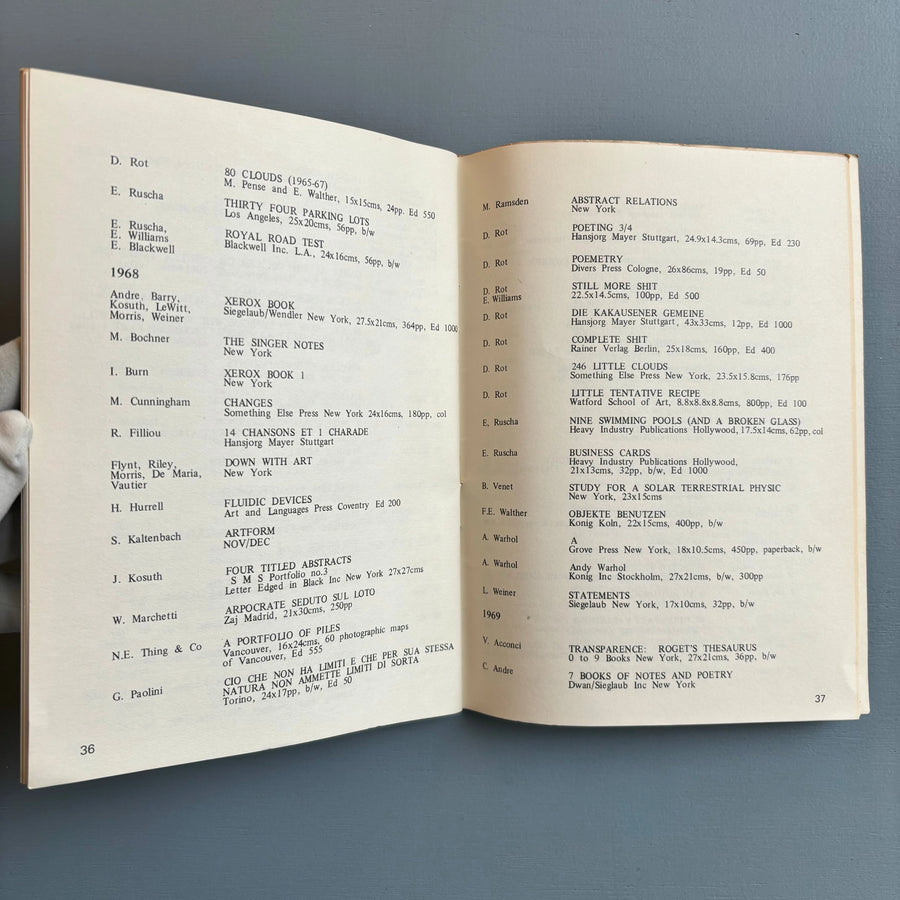 D. Rot
80 CLOUDS (1965-67)
M. Pense and E. Walther, 15x15cms, 24pp. Ed 550
E. Ruscha
THIRTY FOUR PARKING LOTS
Los Angeles, 25x20cms, 56pp, b/w
E. Ruscha,
E. Williams
E. Blackwell
ROYAL ROAD TEST
Blackwell Inc. L.A., 24x16cms, 56pp, b/w
1968
Andre, Barry,
Kosuth, LeWitt,
Morris, Weiner
XEROX BOOK
Siegelaub/Wendler New York, 27.5x21cms, 364pp, Ed 1000
M. Bochner
THE SINGER NOTES
New York
I. Burn
XEROX BOOK 1
New York
M. Cunningham
CHANGES
Something Else Press New York 24x16cms, 180pp, col
R. Filliou
14 CHANSONS ET 1 CHARADE
Hansjorg Mayer Stuttgart
Flynt, Riley,
Morris, De Maria,
Vautier
DOWN WITH ART
New York
H. Hurrell
FLUIDIC DEVICES
Art and Languages Press Coventry Ed 200
S. Kaltenbach
ARTFORM
NOV/DEC
J. Kosuth
FOUR TITLED ABSTRACTS
S M S Portfolio no.3
Letter Edged in Black Inc New York 27x27cms
W. Marchetti
ARPOCRATE SEDUTO SUL LOTO
Zaj Madrid, 21x30cms, 250pp
N.E. Thing & Co
A PORTFOLIO OF PILES
Vancouver, 16x24cms, 60 photographic maps
of Vancouver, Ed 555
G. Paolini
CIO CHE NON HA LIMITI E CHE PER SUA STESSA
NATURA NON AMMETTE LIMITI DI SORTA
Torino, 24x17pp, b/w, Ed 50
36
M. Ramsden
ABSTRACT RELATIONS
New York
D. Rot
POETING 3/4
Hansjorg Mayer Stuttgart, 24.9x14.3cms, 69pp, Ed 230
D. Rot
POEMETRY
Divers Press Cologne, 26x86cms, 19pp, Ed 50
D. Rot
E. Williams
STILL MORE SHIT
22.5x14.5cms, 100pp, Ed 500
D. Rot
DIE KAKAUSENER GEMEINE
Hansjorg Mayer Stuttgart, 43x33cms, 12pp, Ed 1000
D. Rot
COMPLETE SHIT
Rainer Verlag Berlin, 25x18cms, 160pp, Ed 400
D. Rot
246 LITTLE CLOUDS
Something Else Press New York, 23.5x15.8cms, 176pp
D. Rot
LITTLE TENTATIVE RECIPE
Watford School of Art, 8.8x8.8x8.8cms, 800pp, Ed 100
E, Ruscha
NINE SWIMMING POOLS (AND A BROKEN GLASS)
Heavy Industry Publications Hollywood, 17.5x14cms, 62pp, col
E. Ruscha
BUSINESS CARDS
Heavy Industry Publications Hollywood,
21x13cms, 32pp, b/w, Ed 1000
B. Venet
STUDY FOR A SOLAR TERRESTRIAL PHYSIC
New York, 23x15cms
F.E. Walther
OBJEKTE BENUTZEN
Konig Koln, 22x15cms, 400pp, b/w
A. Warhol
A
Grove Press New York, 18x10.5cms, 450pp, paperback, b/w
A. Warhol
Andy Warhol
Konig Inc Stockholm, 27x21cms, b/w, 300pp
L. Weiner
STATEMENTS
Siegelaub New York, 17x10cms, 32pp, b/w
1969
V. Acconci
TRANSPARENCE: ROGET'S THESAURUS
0 to 9 Books New York, 27x21cms, 36pp, b/w
C. Andre
7 BOOKS OF NOTES AND POETRY
Dwan/Sieglaub Inc New York
37